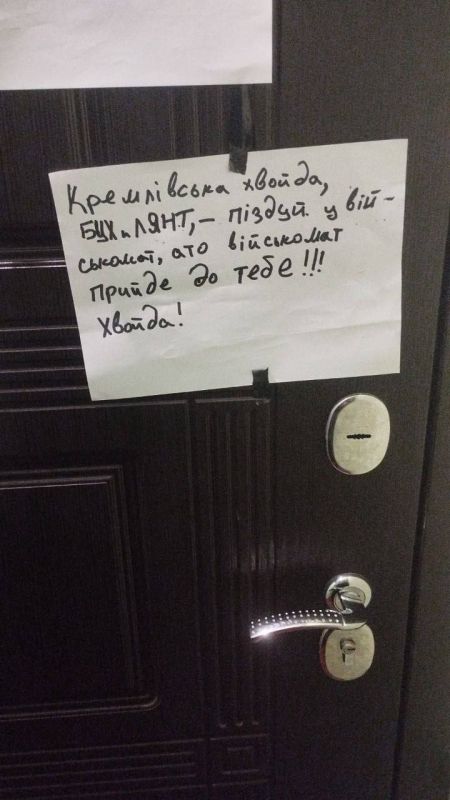 Кремлівська хвойда,
БУХиЛЯНТ,– піздуй у вій-
ськомат, ато військомат
прийде до тебе!!!
Хвойда!